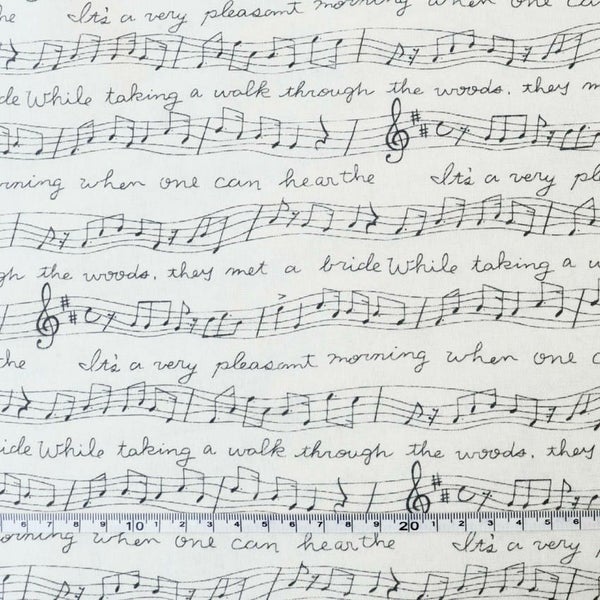 he It's a very pleasant morning when one ca
de While taking a walk through the woods, they m
rning when one can hear the It's a very pl
gh the woods, they met a bride While taking a w
he It's a very pleasant morning when one c
ide While taking a walk through the woods, they
6 7 8 9 10 1 2 3 4 5 6 7 8 9 20 1 2 3 4 5 6
orning when one can hear the It's a very p